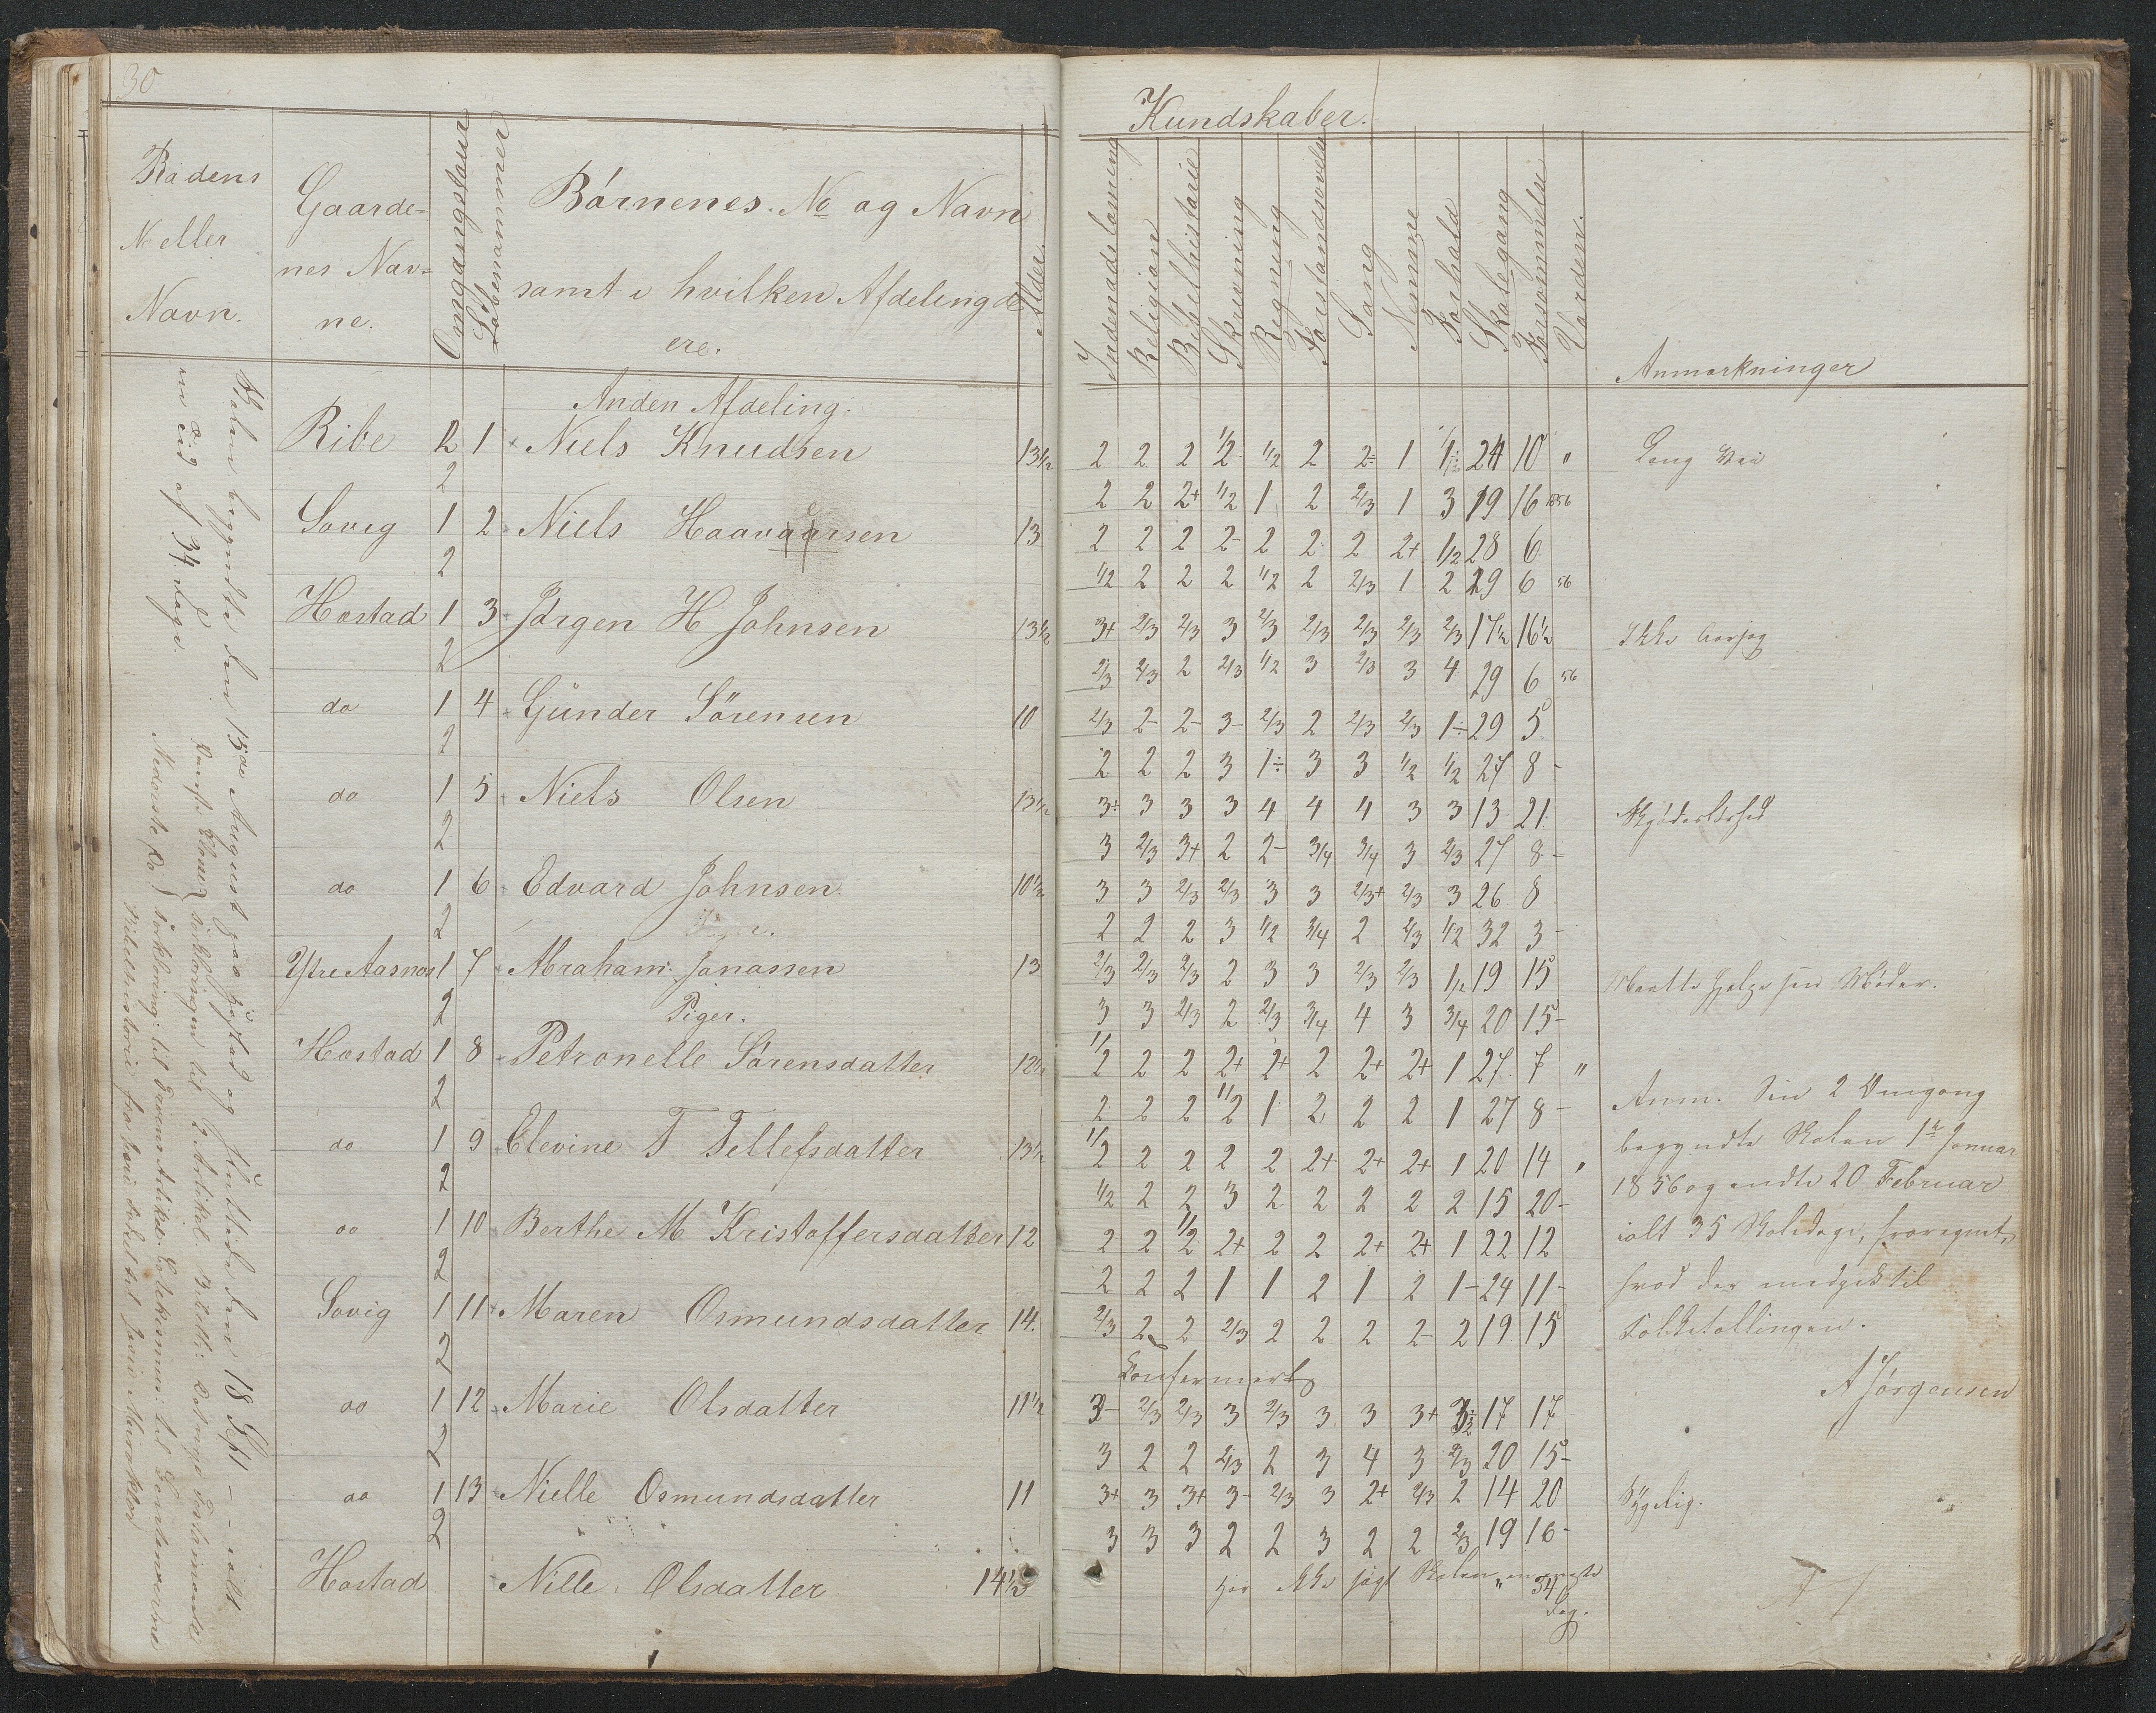 30
Kundskaber.
Rodens
No eller
Navn.
Gaarde-
nes Nav-
ne.
Omgangstour
Løbenummer
Børnenes No og Navn
samt i hvilken Afdeling de
ere.
Alder.
Indenadslæsning
Religion
Bibelhistorie
Skrivning
Regning
Forstandsøvelse
Sang
Nemme
Forhold
Skolegang
Forsømmelse
Værdein.
Anmærkninger
Anden Afdeling.
Ribe 2 1 Niels Knudsen 13 1/2 2 2 2 1/2 1/2 2 2÷ 1 1÷ 24 10 " Lang Vei
2 2 2 2+ 1/2 1 2 2/3 1 3 19 16 1856
Sovig 1 2 Niels Haavaarsen 13 2 2 2 2- 2 2 2 2+ 1/2 28 6
2 1/2 2 2 2 1/2 2 2/3 1 2 29 6 56
Hæstad 1 3 Jørgen H Johnsen 13 1/2 3+ 2/3 2/3 3 2/3 2/3 2/3 2/3 2/3 17 1/2 16 1/2 Ikke
2 2/3 2/3 2 2/3 1/2 3 2/3 3 4 29 6 56
do 1 4 Gunder Sörensen 10 2/3 2- 2- 3- 2/3 2 2/3 2/3 1÷ 29 5
2 2 2 2 3 1÷ 3 3 1/2 1/2 27 8 -
do 1 5 Niels Olsen 13 1/2 3÷ 3 3 3 4 4 4 3 3 13 21
2 3 2/3 3+ 2 2- 3/4 3/4 3 2/3 27 8 -
do 1 6 Edvard Johnsen 10 1/2 3 3 2/3 2/3 3 3 2/3+ 2/3 3 26 8
2 2 2 2 3 1/2 3/4 2 2/3 1/2 32 3 -
Ytre Aasnæs 1 7 Abraham Jonassen 13 2/3 2/3 2/3 2 3 3 2/3 2/3 1/2 19 15 Maatte hjelpe sin Moder.
2 3 3 2/3 2 2/3 3/4 4 3 3/4 20 15 -
Piger.
Hæstad 1 8 Petronelle Sörensdatter 12 1/2 1/2 2 2 2+ 2+ 2 2+ 2+ 1 27 7 "
2 2 2 2 1/2 1 2 2 2 1 27 8 -
do 1 9 Elevine T Tellefsdatter 13 1/2 1/2 2 2 2 2 2+ 2+ 2+ 1 20 14 "
2 1/2 2 2 3 2 2 2 2 2 15 20 -
do 1 10 Berthe M Kristoffersdatter 12 2 2 1/2 2+ 2 2 2+ 2+ 1 22 12
2 2 2 2 1 1 2 1 2 1- 24 11 -
Sovig 1 11 Maren Osmundsdatter 14. 2/3 2 2 2/3 2 2 2 2- 2 19 15
2 Confermert
do 1 12 Marie Olsdatter 11 1/2 3- 2/3 2/3 3 2/3 3 3 3+ 17 17
2 3 2 2 2/3 2 3 4 3 2/3 20 15 -
do 1 13 Nielle Osmundsdatter 11 3+ 3 3+ 3- 2/3 3 2+ 2/3 2 14 20 Sygelig.
2 3 3 3 2 2 3 2 2 2/3 19 16 -
Hæstad Nille Olsdatter 14 1/2 har Ikke søgt Skolen 34 Dag.
Anm. Den 2 Omgang
begyndte Skolen 1te Januar
1856 og endte 20 Februar
ialt 35 Skoledage, fraregnet,
hvad der medgik til
Folketællingen.
A Jørgensen
Skolen begyndte den 15de August paa Hæstad og sluttede den 18 Sept - - ialt
en Tid af 34 dage.
Øverste Classe
Nederste do